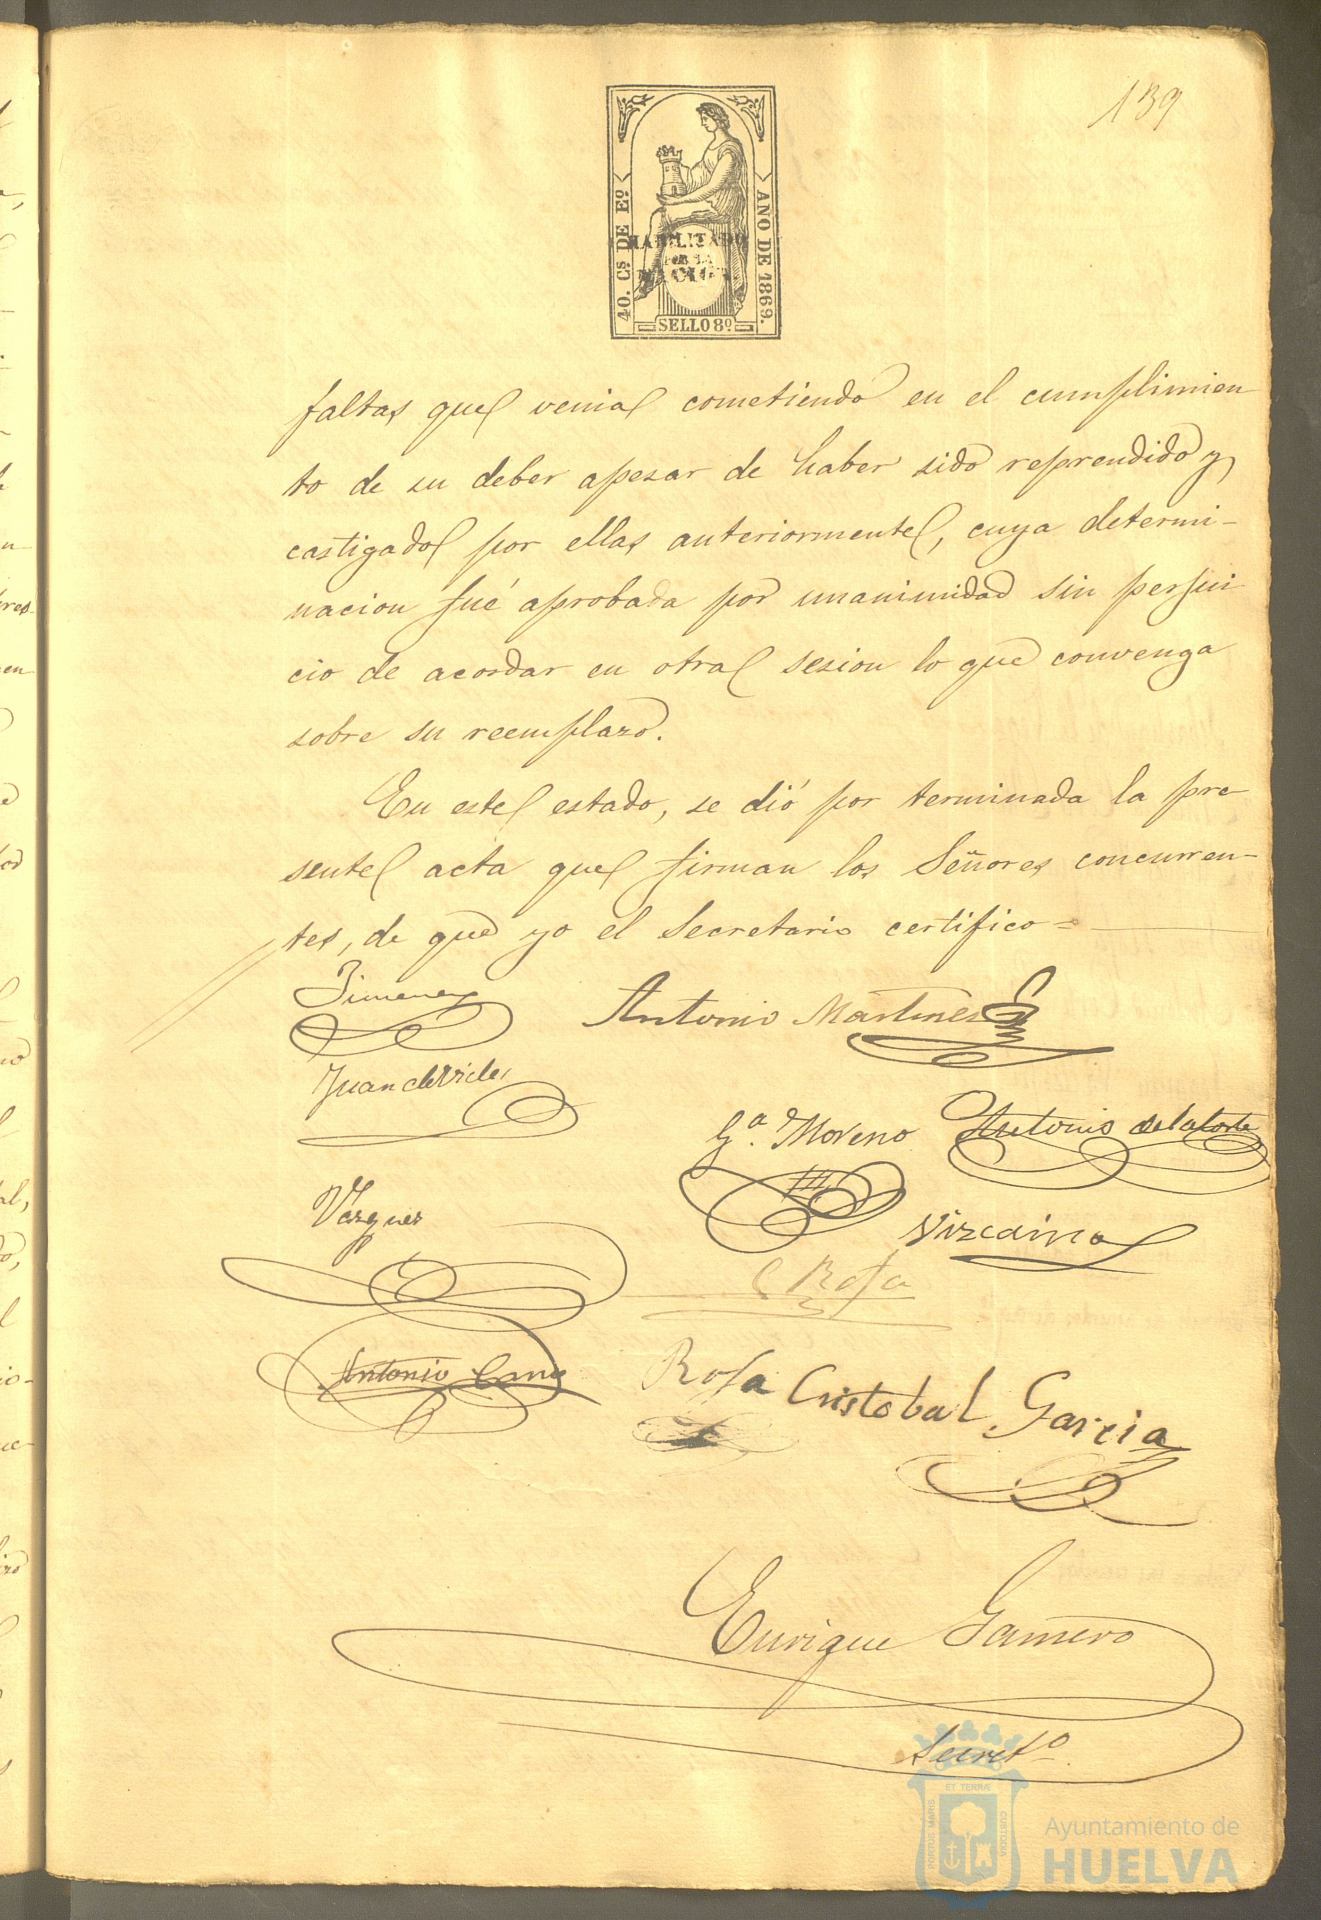 139
40. Cs. DE Eº
AÑO DE 1869.
HABILITADO
POR LA
NACION
SELLO 8º
faltas que venia cometiendo en el cumplimien
to de su deber apesar de haber sido reprendido y
castigado por ellas anteriormente, cuya determi-
nacion fué aprobada por unanimidad sin perjui
cio de acordar en otra sesion lo que convenga
sobre su reemplazo.
En este estado, se dió por terminada la pre
sente acta que firman los Señores concurren-
tes, de que yo el Secretario certifico=
Jimenez
Antonio Martinez
Juan de
Gª. Moreno
Antonio de la Corte
Vazquez
Vizcaino
Rosa
Antonio Cano
Rosa
Cristobal Garcia
Enrique Gamero
Secretº
PORTUS MARIS
ET TERRÆ
CUSTODIA
Ayuntamiento de
HUELVA